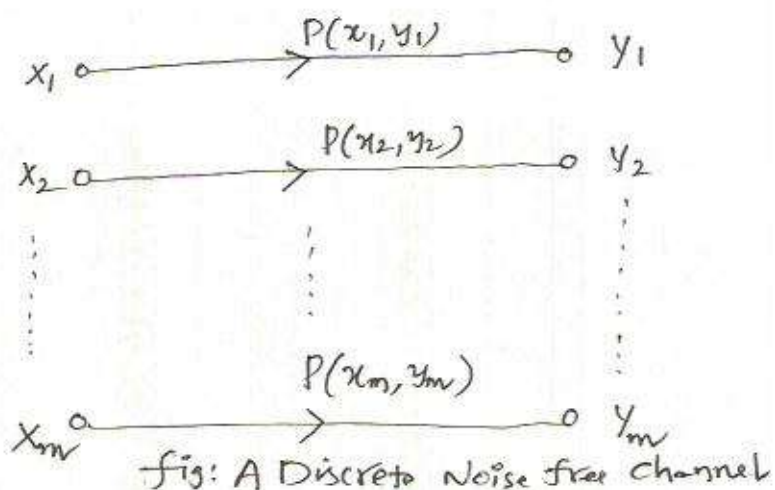 P(x₁, y₁)
X₁ Y₁
P(x₂, y₂)
X₂ Y₂
P(xₘ, yₘ)
Xₘ Yₘ
fig: A Discrete Noise free Channel